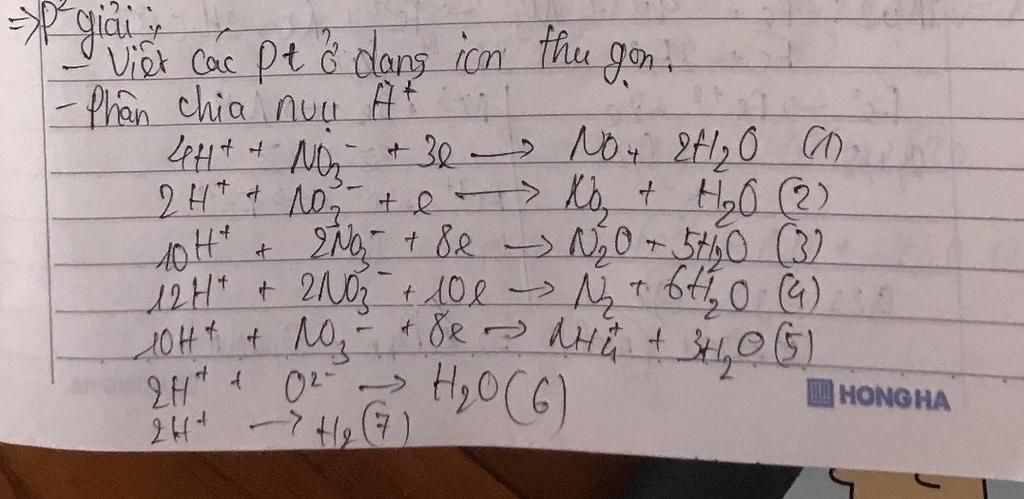 => P² giải:
- Viết các pt ở dạng ion thu gọn.
- Phân chia nvụ H⁺
4H⁺ + NO₃⁻ + 3e → NO + 2H₂O (1)
2H⁺ + NO₃⁻ + e → NO₂ + H₂O (2)
10H⁺ + 2NO₃⁻ + 8e → N₂O + 5H₂O (3)
12H⁺ + 2NO₃⁻ + 10e → N₂ + 6H₂O (4)
10H⁺ + NO₃⁻ + 8e → NH₄⁺ + 3H₂O (5)
2H⁺ + O²⁻ → H₂O (6)
HONG HA
2H⁺ → H₂ (7)